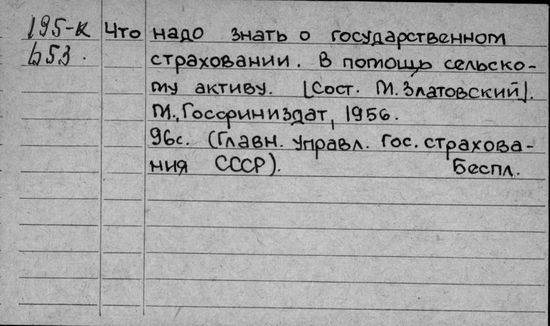 195-к Что надо знать о государственном
653. страховании. В помощь сельско-
му активу. [Сост. М. Златовский].
М., Госфиниздат, 1956.
96с. (Главн. управл. Гос. страхова-
ния СССР). Беспл.